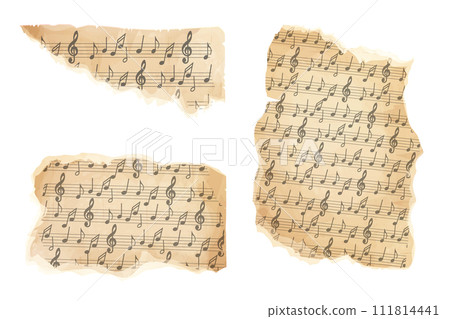 PIXTA
111814441